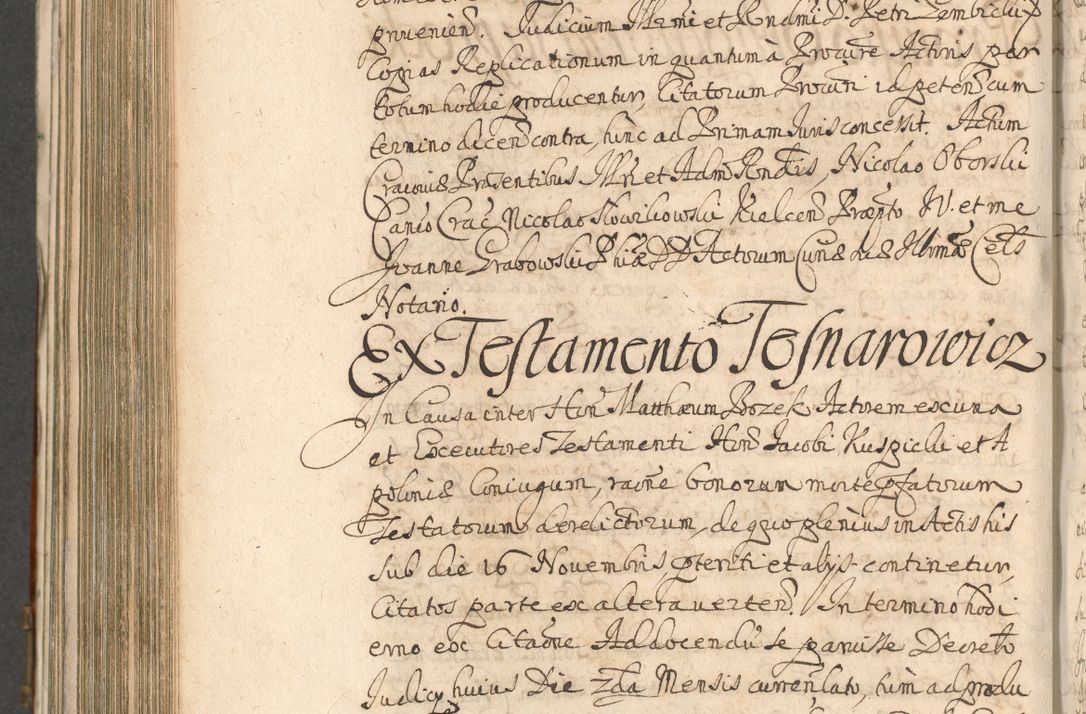 pruenień. Judicium Illrmi et Rndmi D. Petri Zembicki
Copias Replicationum in quantum à Procūre Actoris par
totum hodie producentur, Citatorum Procūri id petenť cum
termino dicenť contra, hinc ad Primam Juris concessit. Actum
Cracoviæ Præsentibus Illri et Adm Rondis, Nicolao Oborski
Canco Crac Nicolao Slowikowski Kielcen Præpto JV. et me
Joanne Grabowski Phiæ DD Actorum Curiæ suæ Illimæ Cels
Notario.
Ex Testamento Tesnarowicz
In Causa inter Hon Matthæum Bozek Actorem ex una
et Executores Testamenti Hon Jacobi Kuspicki et A
poloniæ Coniugum, raone bonorum morte pfatorum
Testatorum derelictorum, de quo plenius in Actis his
sub die 16 Novembris pteriti et alijs continetur,
Citatos parte ex altera verten. In termino hodi
erno ex Citaone Ad docendū se paruisse Decreto
Judicij huius Die 2da Mensis curren lato, tùm ad produ